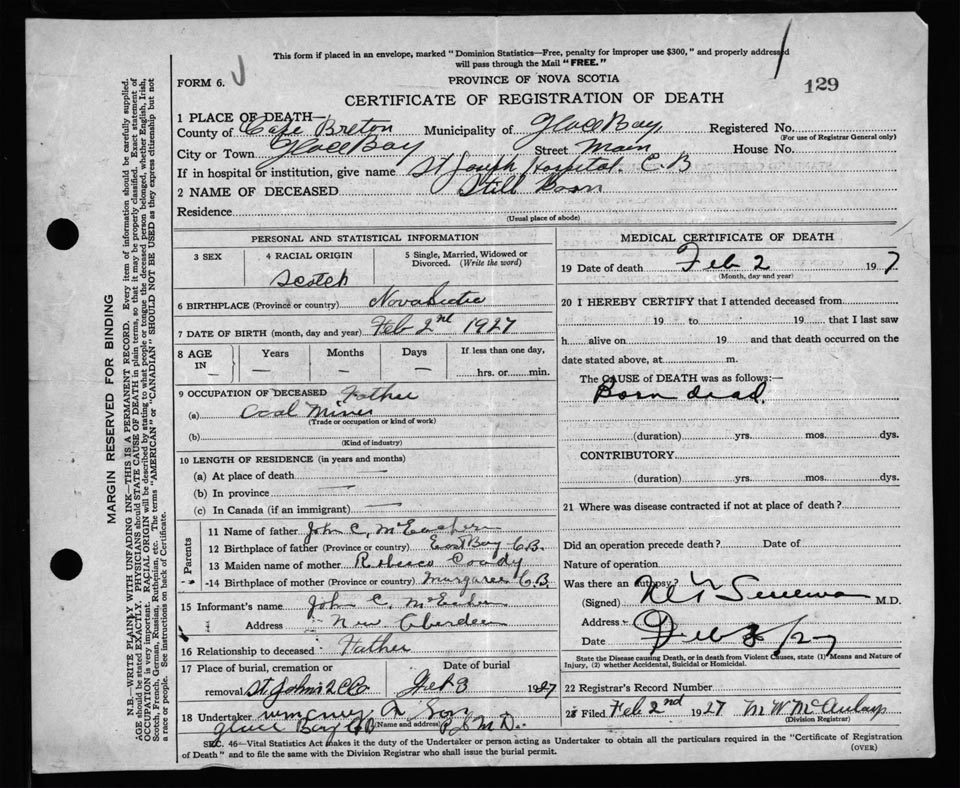 This form if placed in an envelope, marked "Dominion Statistics—Free, penalty for improper use $300," and properly addressed
will pass through the Mail "FREE."
FORM 6.
PROVINCE OF NOVA SCOTIA
129
CERTIFICATE OF REGISTRATION OF DEATH
1 PLACE OF DEATH—
County of Cape Breton Municipality of Glace Bay Registered No.
(For use of Registrar General only)
City or Town Glace Bay Street Main House No.
If in hospital or institution, give name St Joseph Hospital. C B
2 NAME OF DECEASED Still Born
Residence
(Usual place of abode)
PERSONAL AND STATISTICAL INFORMATION
3 SEX 4 RACIAL ORIGIN 5 Single, Married, Widowed or Divorced. (Write the word)
Scotch
6 BIRTHPLACE (Province or country) Nova Scotia
7 DATE OF BIRTH (month, day and year) Feb 2nd 1927
8 AGE IN Years Months Days If less than one day,
— — — — hrs. or min.
9 OCCUPATION OF DECEASED Father
(a) Coal Miner
(Trade or occupation or kind of work)
(b)
(Kind of industry)
10 LENGTH OF RESIDENCE (in years and months)
(a) At place of death —
(b) In province —
(c) In Canada (if an immigrant) —
Parents
11 Name of father John C. McEachern
12 Birthplace of father (Province or country) East Bay C.B.
13 Maiden name of mother Rebecca
14 Birthplace of mother (Province or country) Margaree C.B.
15 Informant's name John C. McEachern
Address New Aberdeen
16 Relationship to deceased Father
17 Place of burial, cremation or removal St. John's Date of burial 3 1927
18 Undertaker & Son
(Name and address)
Glace Bay
MEDICAL CERTIFICATE OF DEATH
19 Date of death Feb 2 19 7
(Month, day and year)
20 I HEREBY CERTIFY that I attended deceased from
19 to 19 that I last saw
h alive on 19 and that death occurred on the
date stated above, at m.
The CAUSE of DEATH was as follows:—
Born dead
(duration) yrs. mos. dys.
CONTRIBUTORY
(duration) yrs. mos. dys.
21 Where was disease contracted if not at place of death?
Did an operation precede death? Date of
Nature of operation
Was there an autopsy?
(Signed) M.D.
Address
Date Feb 3/27
State the Disease causing Death, or in death from Violent Causes, state (1) Means and Nature of
Injury, (2) whether Accidental, Suicidal or Homicidal.
22 Registrar's Record Number
23 Filed Feb 2nd 1927 M W McAulay
(Division Registrar)
SEC. 46—Vital Statistics Act makes it the duty of the Undertaker or person acting as Undertaker to obtain all the particulars required in the "Certificate of Registration
of Death" and to file the same with the Division Registrar who shall issue the burial permit.
(OVER)
MARGIN RESERVED FOR BINDING
N.B.—WRITE PLAINLY WITH UNFADING INK—THIS IS A PERMANENT RECORD. Every item of information should be carefully supplied.
AGE should be stated EXACTLY. PHYSICIANS should STATE CAUSE OF DEATH in plain terms, so that it may be properly classified. Exact statement of
OCCUPATION is very important. RACIAL ORIGIN will be described by stating to what people or tongue the deceased person belonged, whether English, Irish,
Scotch, French, German, Russian, Ruthenian, etc. The terms "AMERICAN" or "CANADIAN" SHOULD NOT BE USED as they express citizenship but not
a race or people. See instructions on back of Certificate.